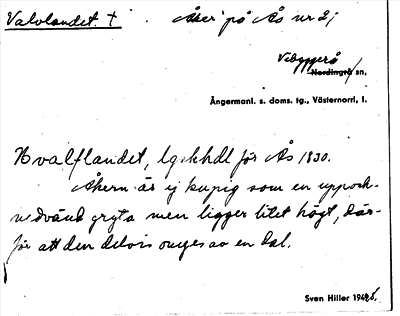 Valvlandet. † . Åker på Ås nr 2;
Vibyggerå
Nordingrå sn,
Ångermanl. s. doms. tg., Västernorrl, l.
Hvalflandet, lgskhdl för Ås 1830.
Åkern är ej kupig som en uppoch-
nedvänd gryta men ligger litet högt, där-
för att den delvis omges av en dal.
Sven Hiller 1946.